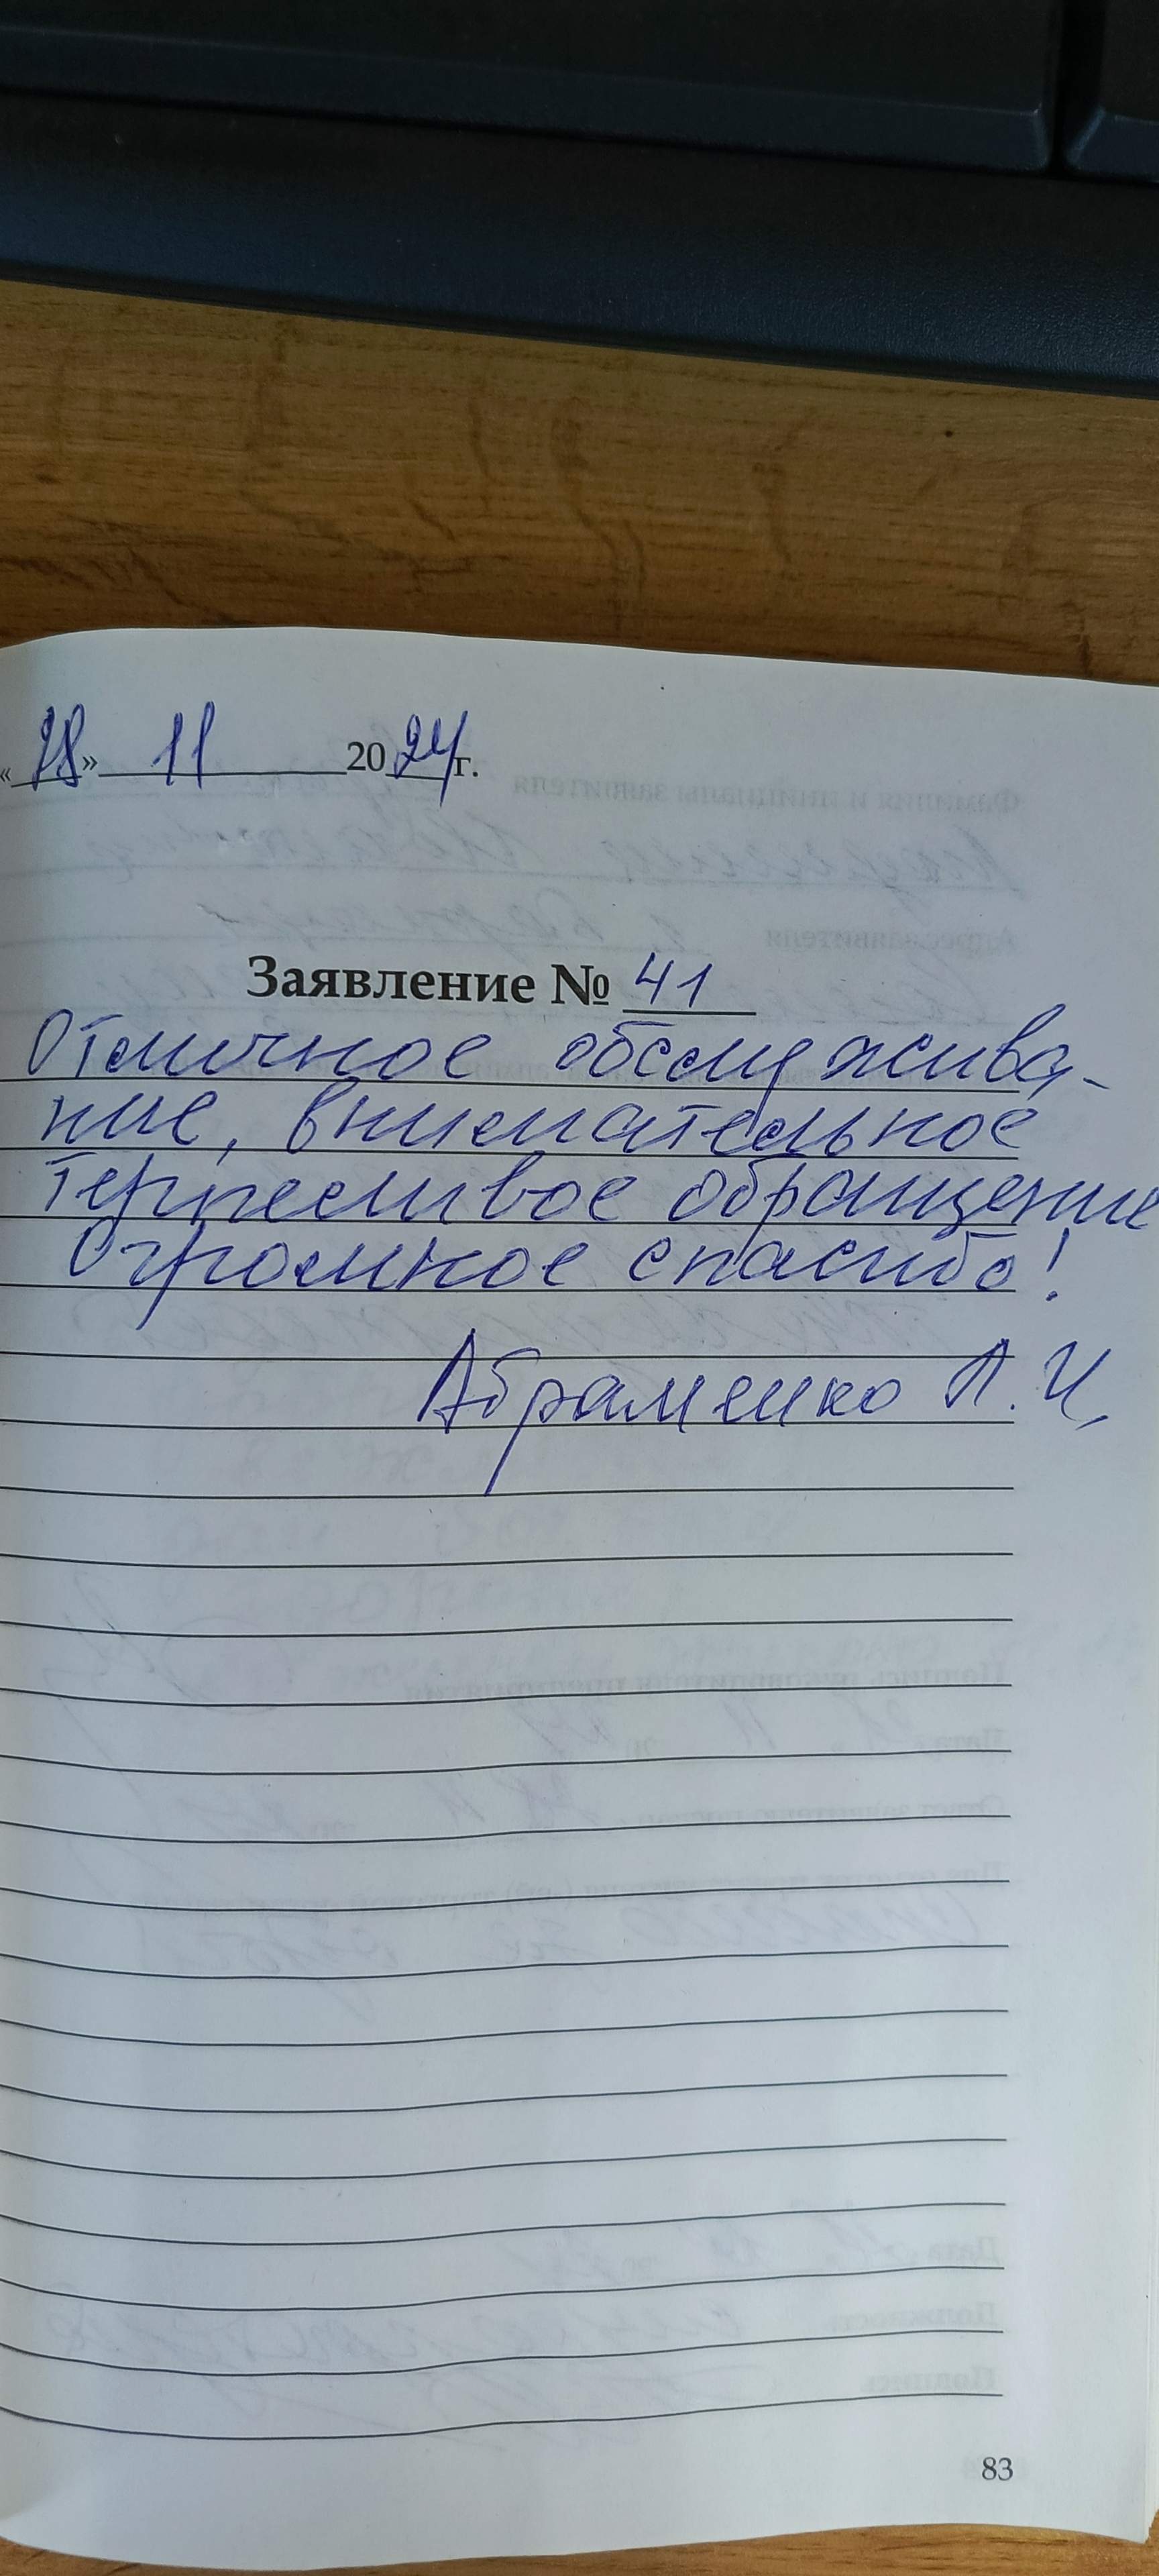 «28» 11 2024г.
Заявление № 41
Отличное обслужива-
ние, внимательное
терпеливое обращение
Огромное спасибо!
Абраменко Л. И.
83